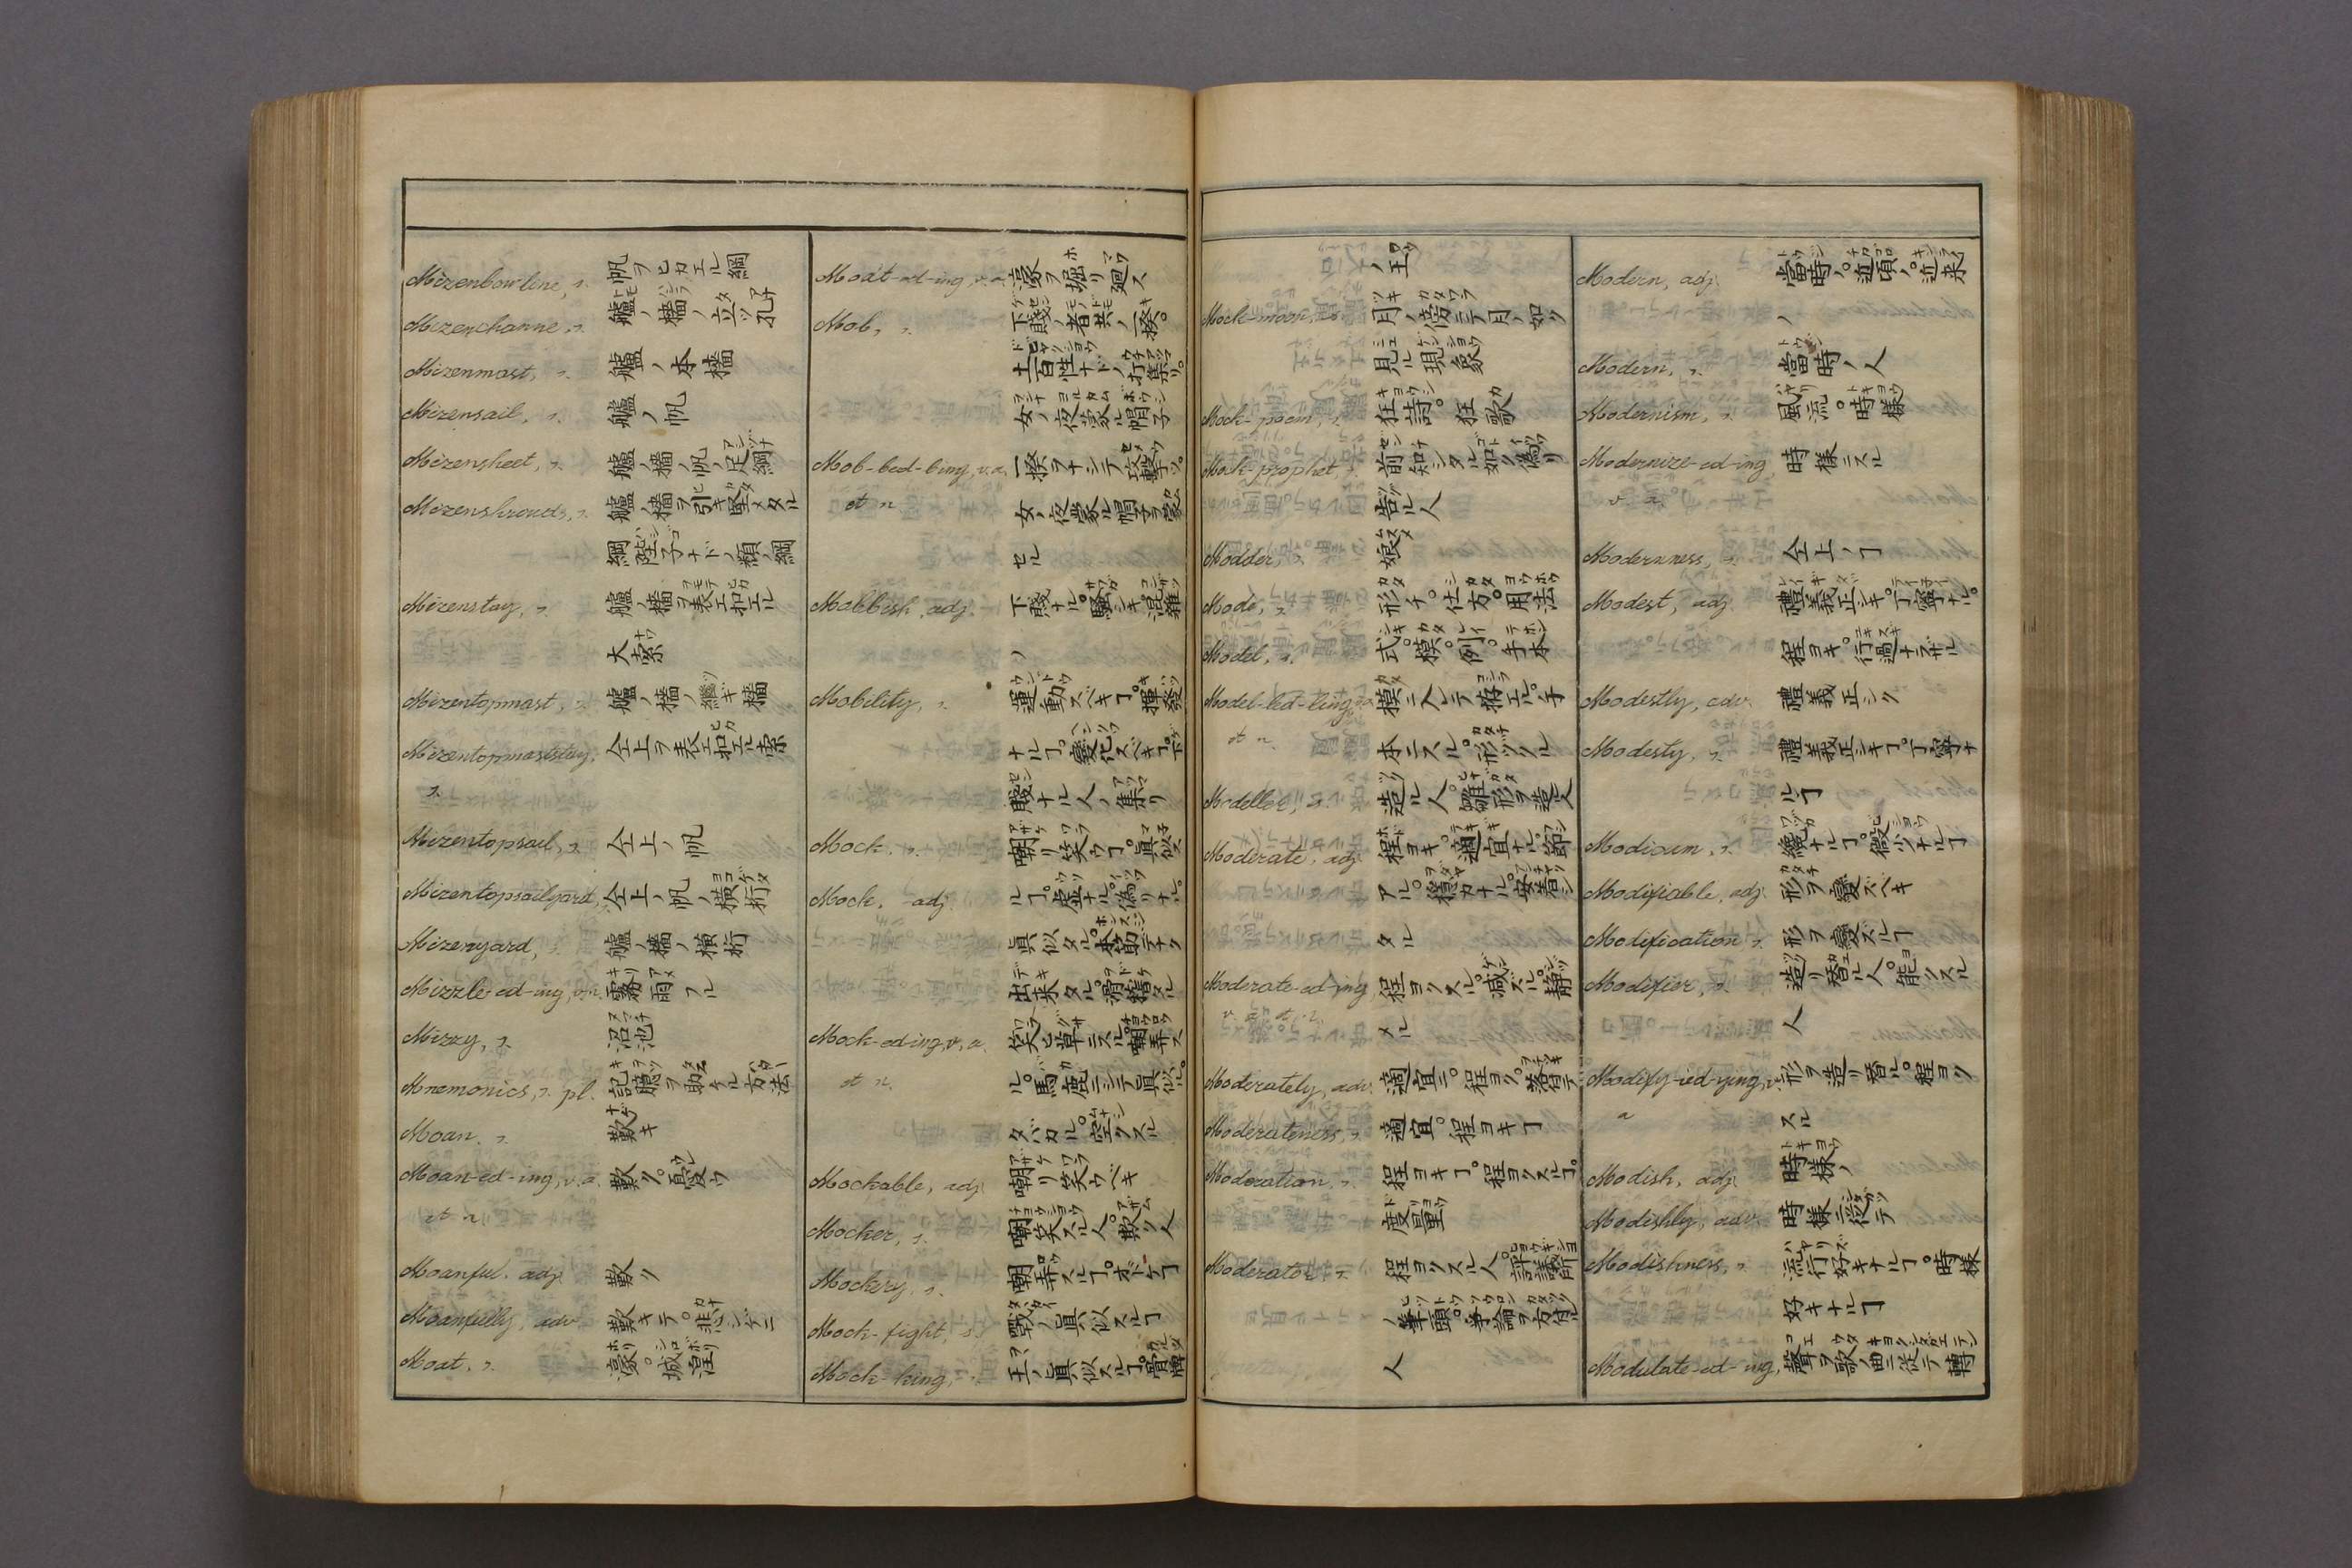 Mizenbowline, s. 帆ヲヒカエル綱
Mizenchanne, s. 艫ノ檣ノ立ツ孔
Mizenmast, s. 艫ノ本檣
Mizensail, s. 艫ノ帆
Mizensheet, s. 艫ノ檣ノ帆ノ足綱
Mizenshrouds, s. 艫ノ檣ヲ引キ堅メタル
綱陛子ナドノ類ノ綱
Mizenstay, s. 艫ノ檣ヲ表エ扣エル
大索
Mizentopmast, s. 艫ノ檣ノ繼ギ檣
Mizentopmaststay, 仝上ヲ表エ扣エル索
s.
Mizentopsail, s. 仝上ノ帆
Mizentopsailyard, 仝上ノ帆ノ横桁
Mizenyard, s. 艫ノ檣ノ横桁
Mizzle-ed-ing, v.n. 霧雨フル
Mizzy, s. 沼池
Mnemonics, s. pl. 記臆ヲ助クル方法
Moan, s. 歎キ
Moan-ed-ing, v.a. 歎ク。憂ウ
et n.
Moanful. adj. 歎ク
Moanfully, adv. 歎キテ。悲シゲニ
Moat, s. 濠。城湟
Moat-ed-ing, v.a. 濠ヲ堀リ廻ス
Mob, s. 下賤ノ者共ノ一揆。
土百性ナドノ打集リ。
女ノ夜蒙ル帽子
Mob-bed-bing, v.a. 一揆ヲナシテ攻撃ツ。
et n. 女ノ夜蒙ル帽子ヲ蒙
セル
Mobbish, adj. 下賤ナル。騒シキ。混雜
ノ
Mobility, s. 運動スベキヿ。揮發
ナルヿ。變化スベキヿ。下
賤ナル人ノ集リ
Mock, s. 嘲リ笑ウヿ。眞似
Mock. adj. ルヿ。虚ナル。偽リナル。
眞似タル。本筋デナク
出来タル。滑稽タル
Mock-ed-ing, v.a. 笑ヒ草ニスル。嘲弄ス
et n. ル。馬鹿ニシテ眞似ル。
タバカル。空クスル
Mockable, adj. 嘲リ笑ウベキ
Mocker, s. 嘲笑スル人。欺ク人
Mockery, s. 嘲弄スルヿ。オドケヿ
Mock-fight, s. 戰ノ眞似スルヿ
Mock-king, s. 王ノ眞似スルヿ。骨牌
ノ王
Mock-moon, s. 月ノ傍ニテ月ノ如ク
見ル現象
Mock-poem, s. 狂詩。狂歌
Mock-prophet, s. 前知シタル如ク偽リ
告ル人
Modder, s. 娘
Mode, s. 形チ。仕方。用法
Model, s. 式。模。例。手本
Model-led-ling, v.a. 模ニ入レテ拵エル。手
et n. 本ニスル。形ヅクル
Modeller, s. 造ル人。雛形ヲ造ル人
Moderate, adj. 程ヨキ。適宜ナル。節
アル。穏カナル。安着シ
タル
Moderate-ed-ing, 程ヨクスル。減ズル。静
v. a. et n. メル
Moderately, adv. 適宜ニ。程ヨク。落着テ
Moderateness, s. 適宜。程ヨキヿ
Moderation, s. 程ヨキヿ。程ヨクスルヿ。
度量
Moderator, s. 程ヨクスル人。評議所
ノ筆頭。爭論ヲ方附ル
人
Modern, adj. 當時ノ。近頃ノ。近来
ノ
Modern, s. 當時ノ人
Modernism, s. 風流。時様
Modernize-ed-ing, 時様ニスル
v. a.
Modernness, s. 仝上ノヿ
Modest, adj. 禮義正シキ。丁寧ナル。
程ヨキ。行過ナラザル
Modestly, adv. 禮義正シク
Modesty, s. 禮義正シキヿ。丁寧ナ
ルヿ
Modicum, s. 纔ナルヿ。微少ナルヿ
Modifiable, adj. 形ヲ變ズベキ
Modification s. 形ヲ變ズルヿ
Modifier, s. 造リ替ル人。能クスル
人
Modify-ied-ying, v. 形ヲ造リ替ル。程ヨク
a スル
Modish, adj. 時様ノ
Modishly, adv. 時様ニ從テ
Modishness, s. 流行好キナルヿ。時様
好キナルヿ
Modulate-ed-ing, 聲ヲ歌ノ曲ニ從テ轉